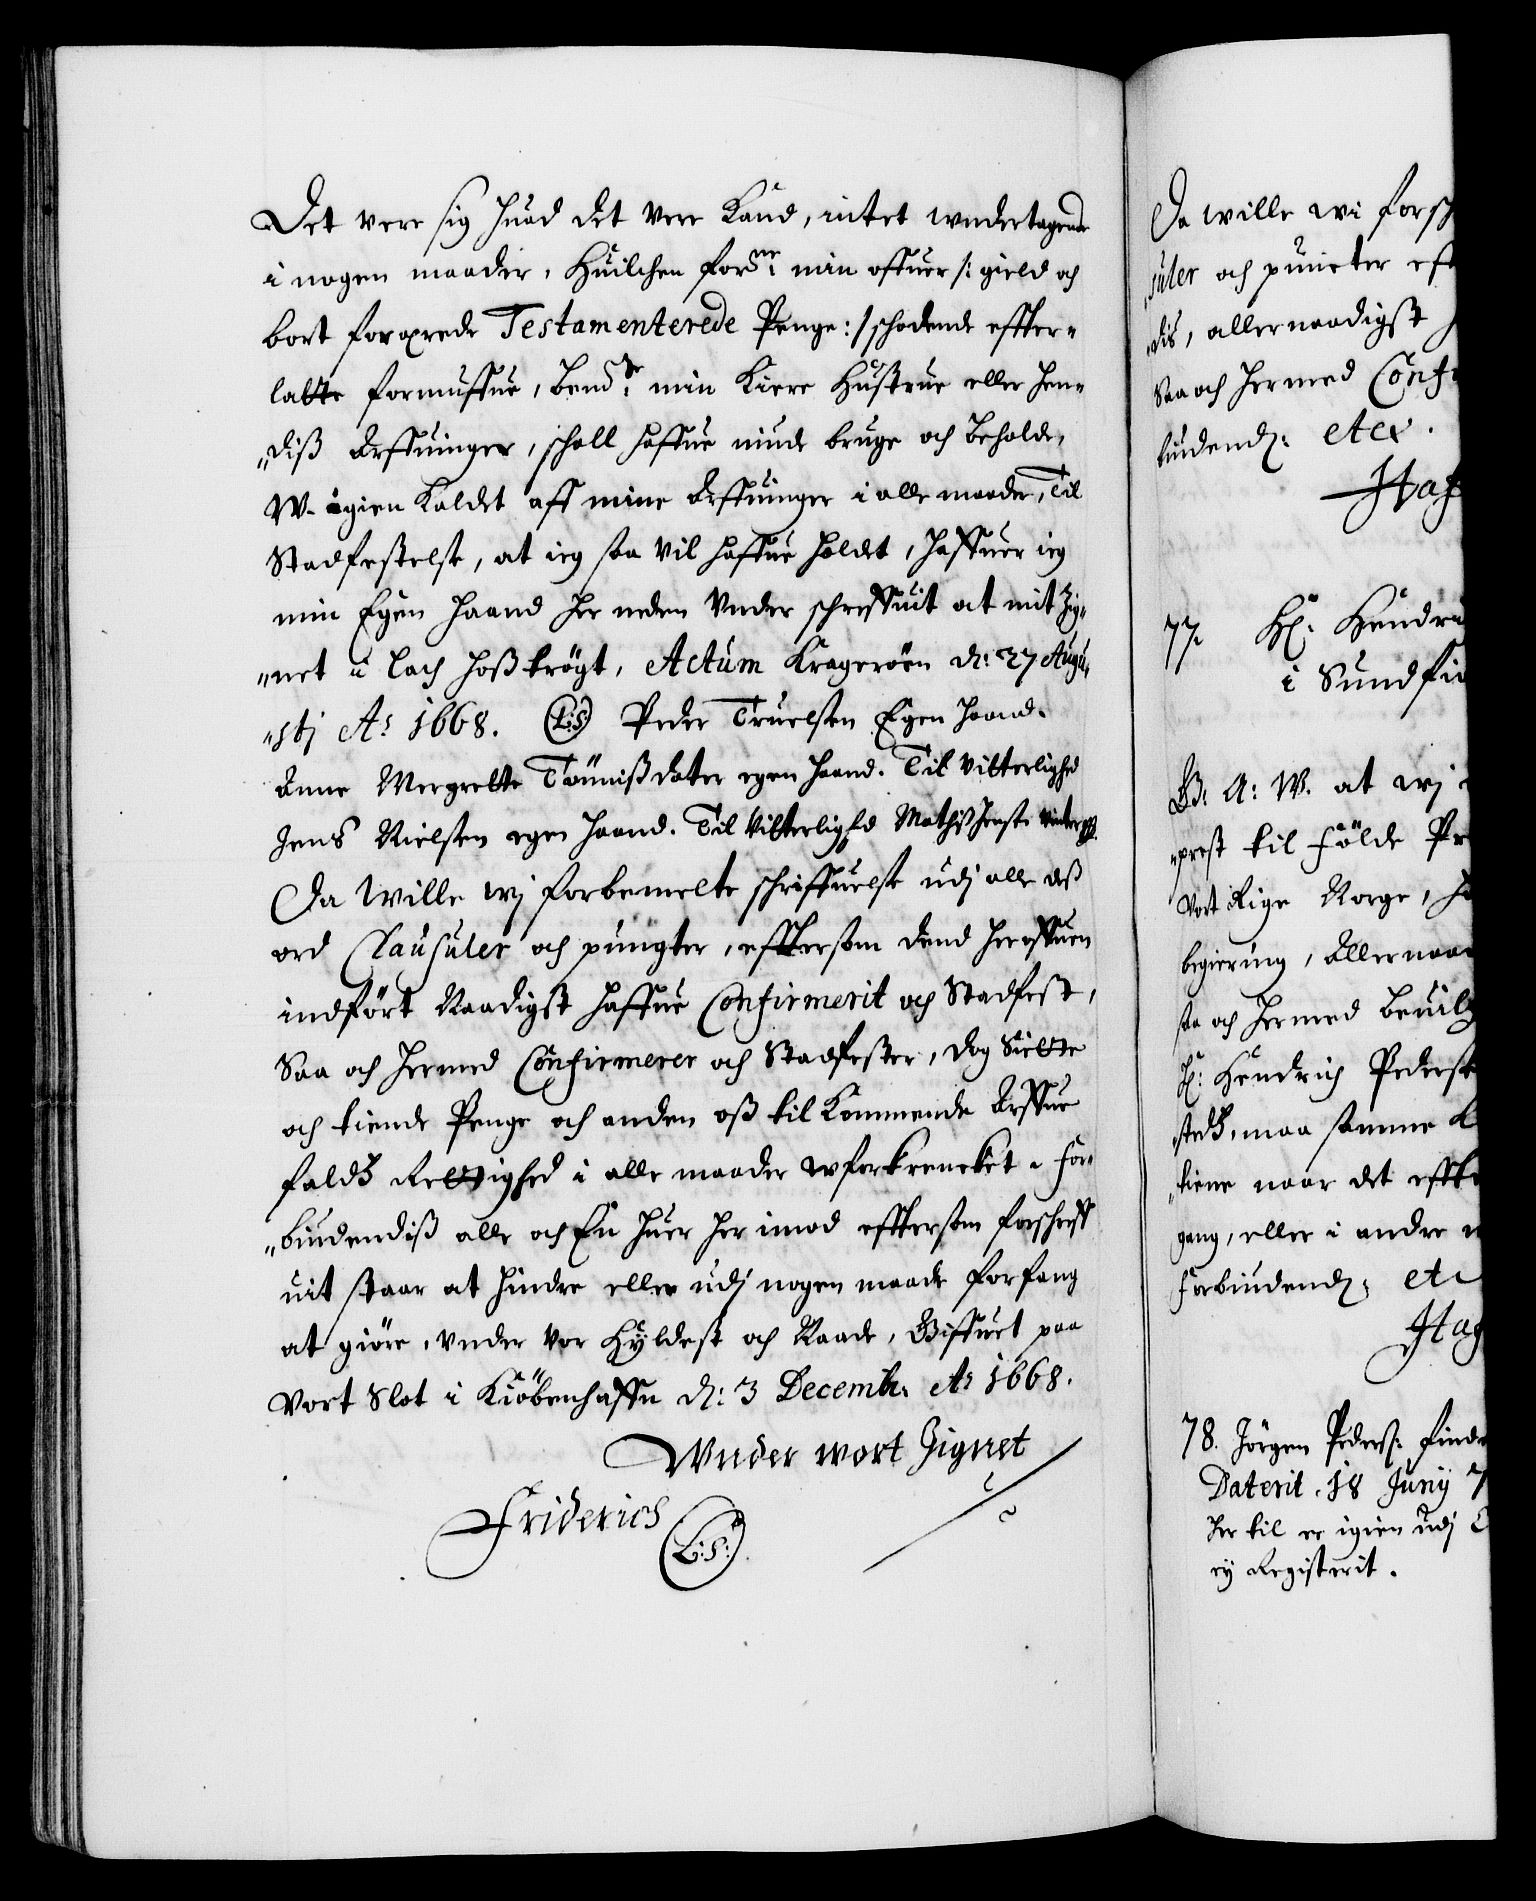 Det vere sig huad det vere Kand, intet wndertagende
i nogen maader, Huilchen fordne: min offuer /: gield och
bort foræærede Testamenterede Penge :/ schydende effter-
latte formuffue, bemte: min Kiere Hustrue eller hen-
"diß Arffuinger, schall haffue niude bruge och beholde,
W-igien Kaldet aff mine Arffuinger i alle maader, Til
Stadfestelse, at ieg saa vil haffue holdet, haffuer ieg
min Egen haand her neden Vnder schreffuit at mit Zig-
"net i lach hoß trögt, Actum Krageröen d: 27 Augu-
"stj Ao 1668. (L:S) Peder Truelsen Egen haand.
Anne Mergrette Tönnißdater egen haand. Til Vitterlighed
Jens Nielsen egen haand. Til Vitterlighed Mathiß Jenste
Da Wille wj forbemelte schriffuelse udj alle deß
ord Clausuler och pungter, efftersom dend her offuen
indfört Naadigst haffue Confirmerit och Stadfest,
Saa och hermed Confirmerer och Stadfester, dog Siette
och tiende Penge och anden oß til Kommende Arffue
faldß Rettighed i alle maader wforkrencket. For-
"biudendiß alle och En huer her imod efftersom forschreff
uit staar at hindre eller udj nogen maade forfang
at giöre, vnder Vor Hyldest och Naade, Giffuet paa
Vort Slot i Kiöbenhaffn d: 3 Decemb: Ao 1668.
Wnder wort Zignet
Friderich (L:S:)
Da wille wi forsch
"suler och puncter eft
"dis, allernaadigst
Saa och hermed Confi
biudend: etc.
Haf
77. Hr: Hendri
i Sundfi
G: A: W. at wj
"prest til Földe Pr
Vort Rige Norge, ha
begiering, Allernaa
saa och hermed beuilg
Hr: Hendrich Peders
stedß, maa samme
"tiene naar det effte
gang, eller i andre
forbiudend: etc
Haf
78. Jörgen Peders: Find
Daterit. 18 Junij 7
her til er igien udj
ey Registerit.